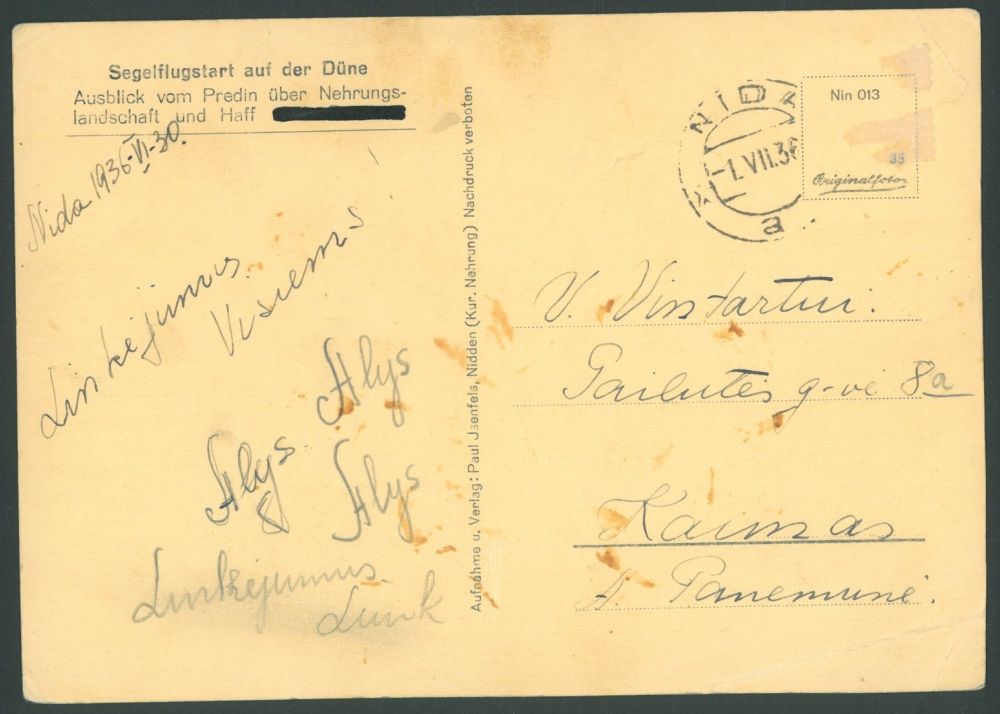 Segelflugstart auf der Düne
Ausblick vom Predin über Nehrungs-
landschaft und Haff
Nida 1936-VI-30.
Linkejimus
Visiems!
Alys
Alys
Alys
Linkejimus
Link
Aufnahme u. Verlag: Paul Jsenfels, Nidden (Kur. Nehrung) Nachdruck verboten
NIDA
-1.VII.36
a
Nin 013
35
Originalfoto
V. Vintartui.
Gailutės g-vė 8a
Kaunas
A. Panemunė.